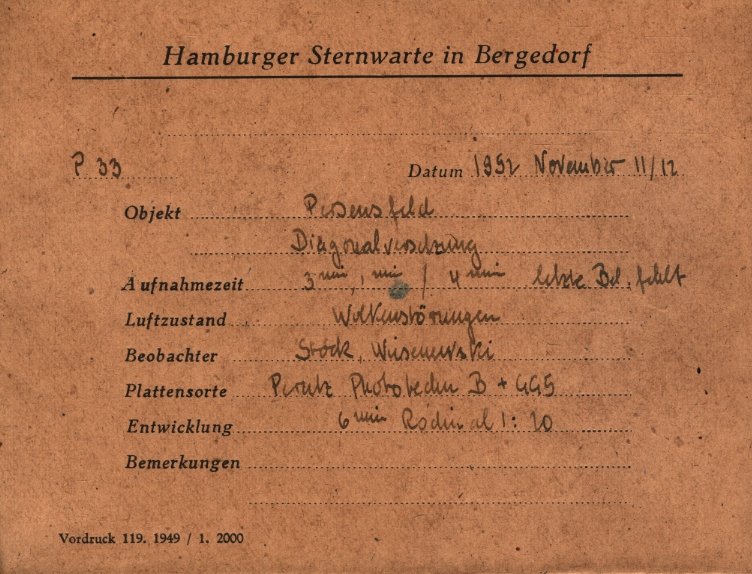 Hamburger Sternwarte in Bergedorf
P 33 Datum 1952 November 11/12
Objekt Perseusfeld
Diagonalversetzung
Aufnahmezeit 3 min, 1 min / 4 min letzte Bel. fehlt
Luftzustand Wolkenstörungen
Beobachter Stock, Wisenewski
Plattensorte Perutz B + GG5
Entwicklung 6 min Rodinal 1: 20
Bemerkungen
Vordruck 119. 1949 / 1. 2000